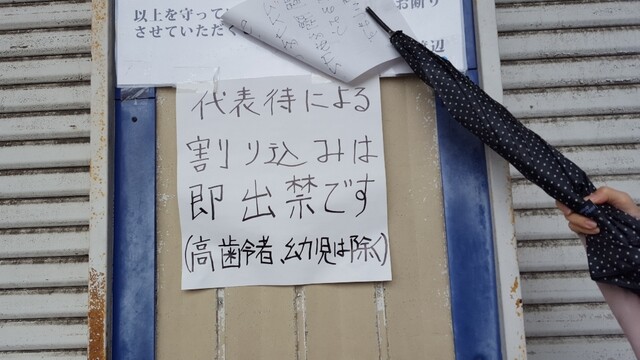 以上を守って
させていただく
お断り
辺
代表待による
割り込みは
即出禁です
(高齢者、幼児は除く)